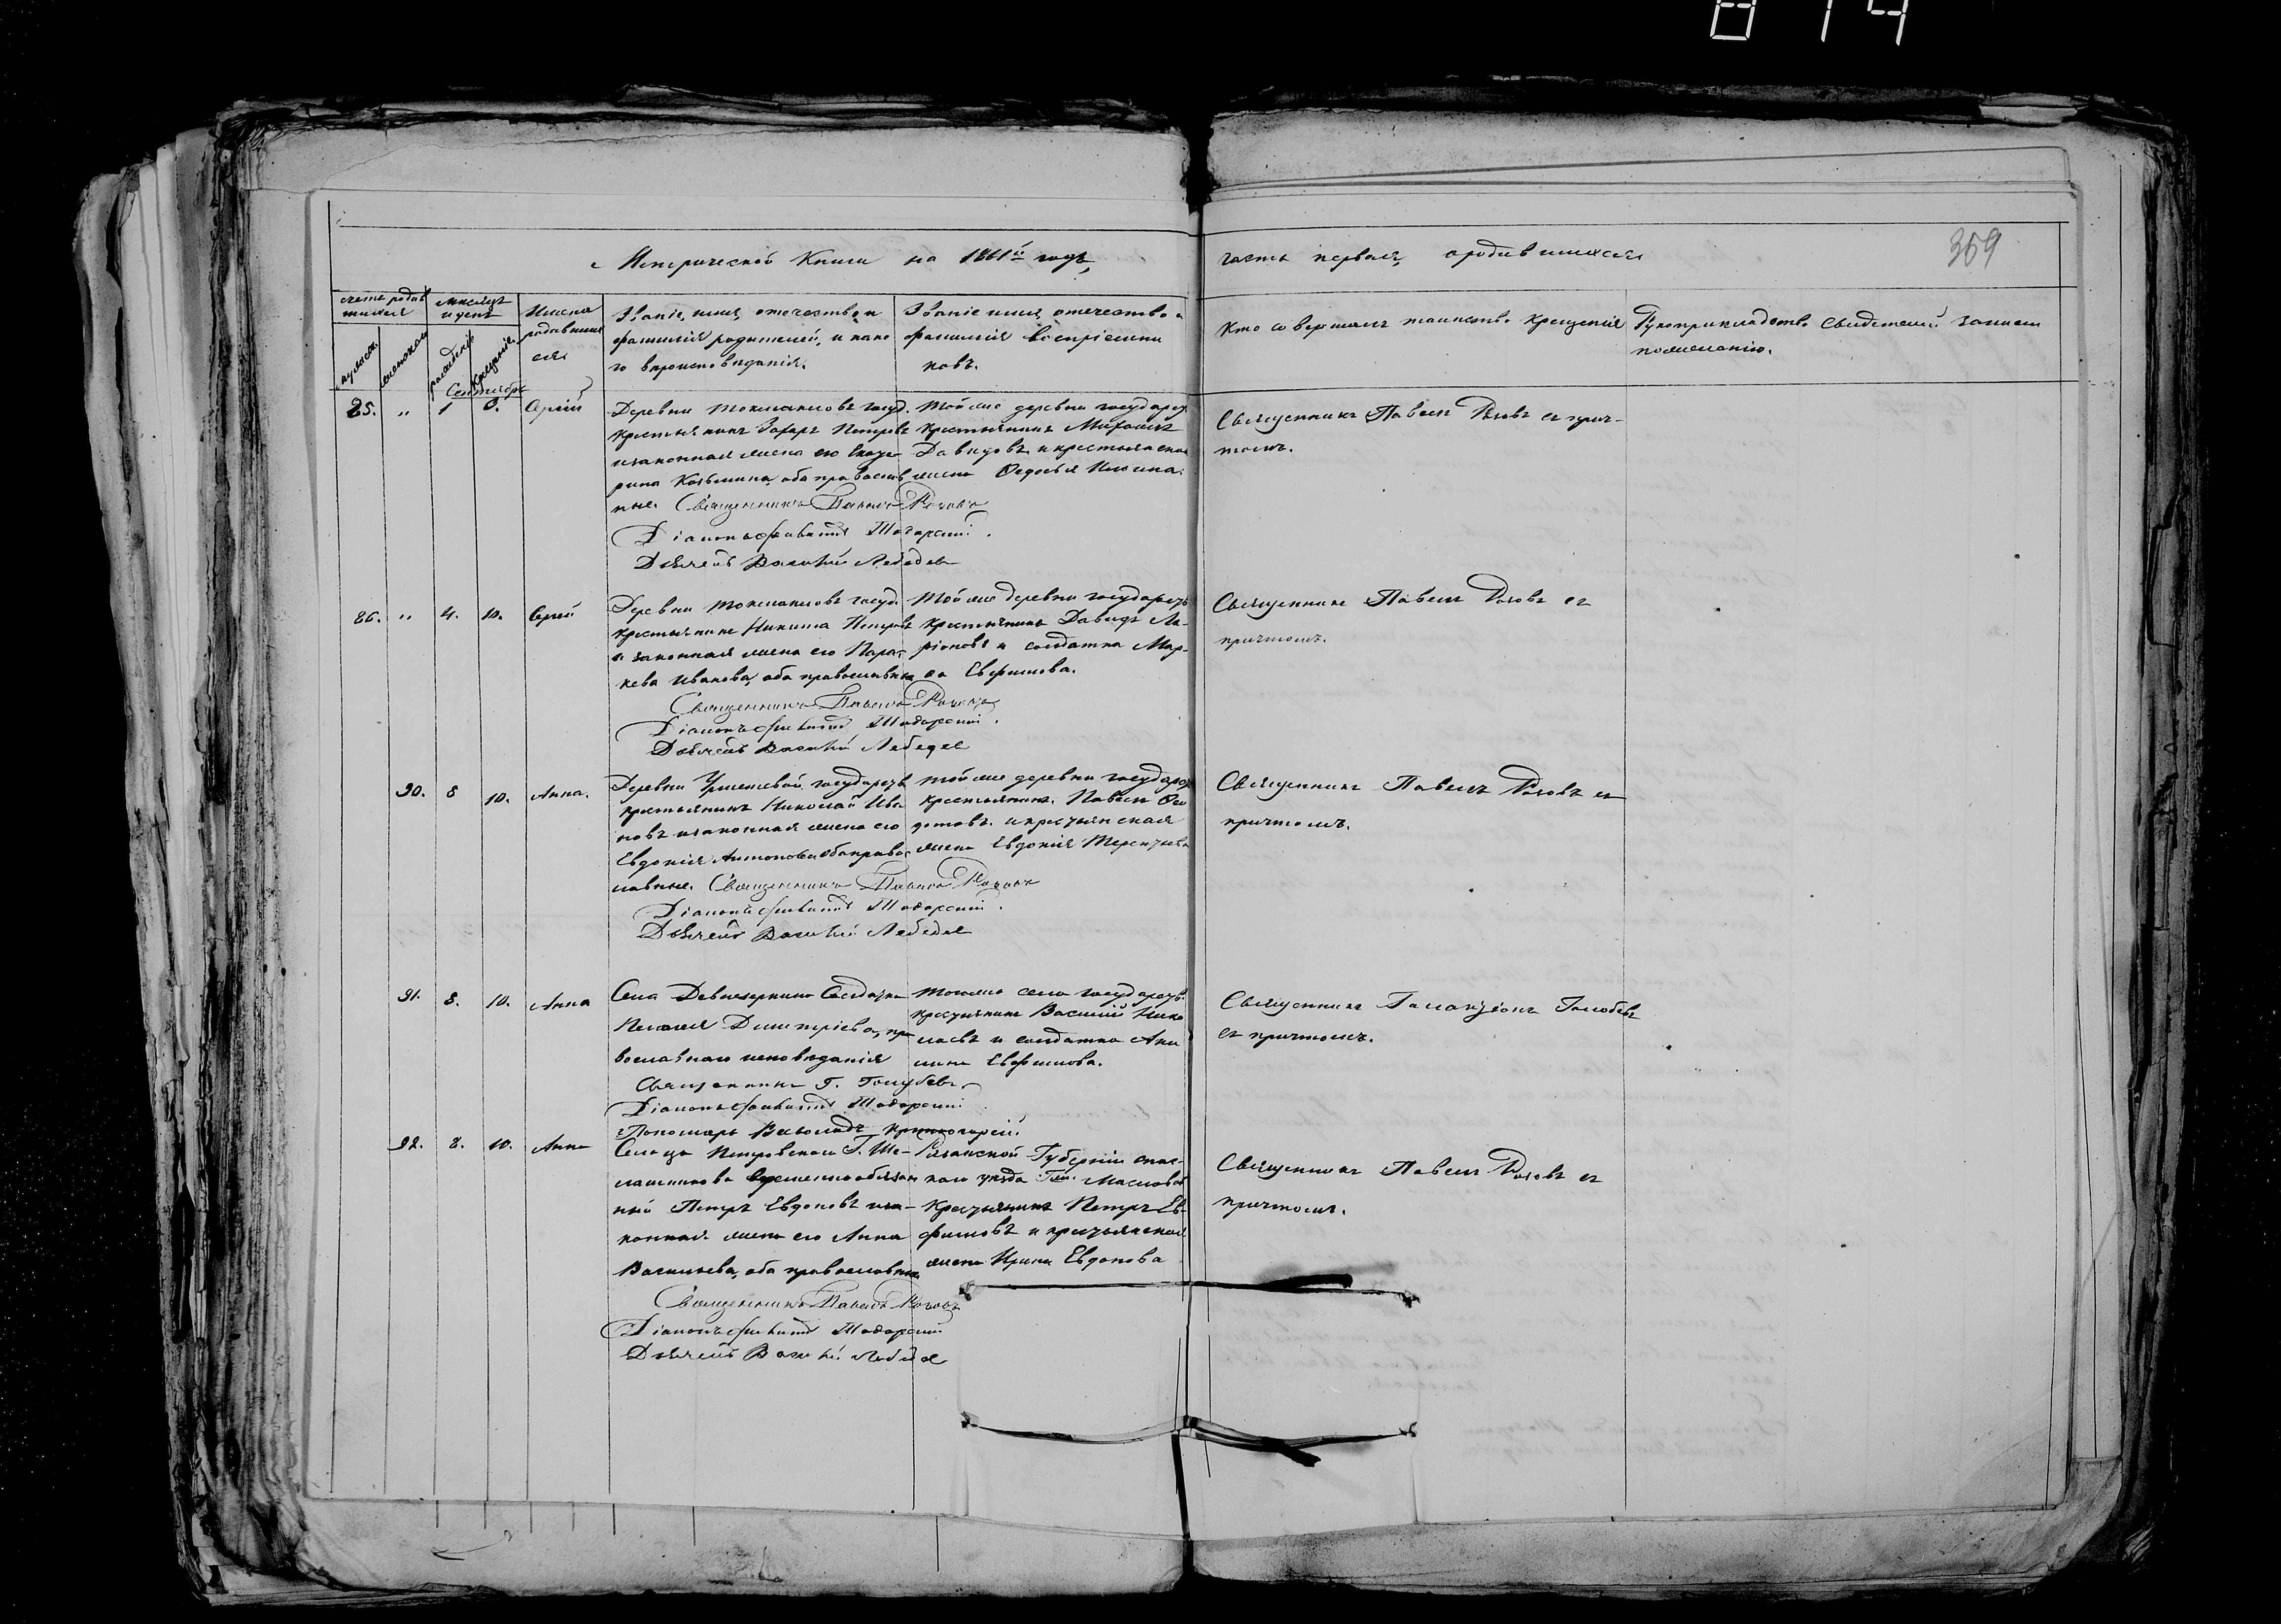 814
Метрической Книги на 1861й годъ,
часть первая, о родившихся
359
счетъ родив
шихся
мѣсяцъ
и день
Имена
родивших
ся
Званіе, имя, отечество и
фамилія родителей, и како
го вѣроисповѣданія.
Званіе имя, отечество и
фамилія воспріемни
ковъ.
Кто совершалъ таинство Крещенія
Рукоприкладство свидѣтелей записи
по желанію.
мужск.
женскаго
рожденія
крещенія.
Сентябрь
85. " 1 3. Сергій
Деревни Токмаковъ госуд.
крестьянинъ Захаръ Петровъ
и законная жена его Екате
рина Козьмина, оба православ
ные. Священникъ Павелъ Розовъ
Діаконъ Тодорскій.
Дьячекъ Василій Лебедев
Той же деревни государ.
крестьянинъ Михаилъ
Давидовъ и крестьянская
жена Ѳедосья Ильина.
Священникъ Павелъ Розовъ съ прич-
томъ.
86. " 4. 10. Сергей
Деревни Токмаковъ госуд
крестьянинъ Никита Петровъ
и законная жена его Парас
кева Иванова, оба православные
Священникъ Павелъ Розовъ
Діаконъ Тодорскій.
Дьячекъ Василій Лебедев
Той же деревни государс
крестьянинъ Давидъ Ла-
ріоновъ и солдатка Мар-
ѳа Евфимова.
Священникъ Павелъ Розовъ съ
причтомъ.
90. 8 10. Анна.
Деревни государств
крестьянинъ Николай Ива
новъ и законная жена его
Евдокія Антонова оба правос
лавные. Священникъ Павелъ Розовъ
Діаконъ Тодорскій.
Дьячекъ Василій Лебедев
Той же деревни государс
крестьянинъ Павелъ Ѳео
дотовъ и крестьянская
жена Евдокія Терентьева
Священникъ Павелъ Розовъ съ
причтомъ.
91. 8. 10. Анна
Села Солдатка
Пелагея Димитріева, пра
вославнаго исповѣданія
Священникъ Г. Голубевъ
Діаконъ Тодорскій
Пономарь
Тогоже села государств.
крестьянинъ Василій Нико
лаевъ и солдатка Аки
лина Евфимова.
Священникъ Галактіонъ Голубевъ
съ причтомъ.
92. 8. 10. Анна
Сельца Петровскаго Г. Ше-
лашникова временнообязан
ный Петръ Евдоковъ и за-
конная жена его Анна
Васильева, оба православные
Священникъ Павелъ Розовъ
Діаконъ Тодорскій
Дьячекъ Василій Лебедев
Рязанской Губерніи Спас-
каго уѣзда Гжи. Масловой
крестьянинъ Петръ Ев-
фимовъ и крестьянская
жена Ирина Евдокова
Священникъ Павелъ Розовъ съ
причтомъ.